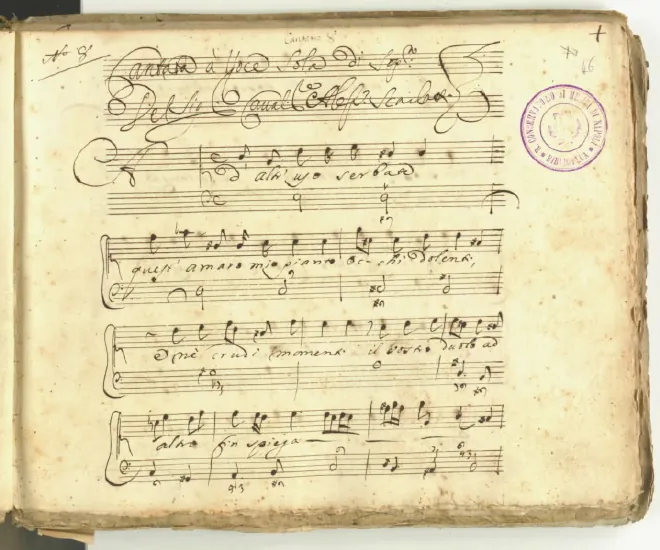 Cantata 8ª
No 8
Cantata à Voce Sola di Sopno:
Del Sig: Caval: Aless: Scarlatti
Ad altr' uso serbate
quest' amaro mio pianto oc-chi dolenti,
e ne crudi momenti il vostro duolo ad
altro fin spiega
66
R. CONSERVATORIO DI MUSICA NAPOLI